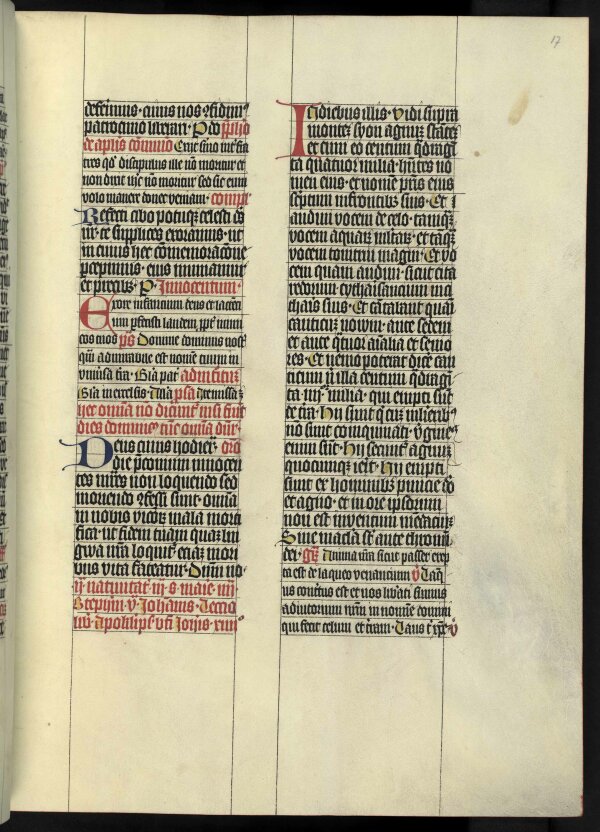 17
defecimus · cuius nos ꝯfidimꝰ
patrocinio liberari · P do
de aplis cõmunio Exijt sermo inter fra
tres qd discipulus ille nõ moritur et
non dixit ihc nõ moritur sed sic eum
volo manere donec veniam · compl
Refecti cibo potuqꝫ celesti ds
nr te supplices exoramus · ut
in cuius hec comemoracõne
ꝑcepimus · eius muniamur
et precibꝫ · Innocentum ·
Ex ore infancium deus et lacten
cium ꝑfecisti laudem ꝓpter inimi
cos tuos ps Domine dominus nost
qm admirabile est nomen tuum in
vniuersa terra · Gla patri
Gla in excelsis · Alla
hec omnia nõ dicuntur nisi fuerit
dies dominicꝰ tunc omnia dnr ·
Deus cuius hodierna oro
die preconium innocen
tes mres non loquendo sed
moriendo ꝯfessi sunt · omnia
in nobis vicioꝝ mala morti
fica · ut fidem tuam quam lin
gwa nra loquitur eciam mori
bus vita fateatur · Dnm no ·
Stephani Johanis ·
lib Apoklipse bti Johis xiiii
In diebus illis · Vidi supra
montem syon agnum stantem
et cum eo centum qdragin
ta quatuor milia · hntes no
men eius · et nomen pris eius
scriptum in frontibus suis · Et
audiui vocem de celo · tamqꝫ
vocem aquaꝝ multaꝝ · et tamqꝫ
vocem tonitrui magni · Et vo
cem quam audiui · sicut citha
redorum cytharisancium in cy
tharis suis · Et cantabant quasi
canticum nouum · ante sedem
et ante qtuor aialia et senio
res · Et nemo poterat dicere can
ticum nisi illa centum qdragin
ta iiii milia · qui empti sunt
de terra · Hij sunt qi cum mulieribꝰ
nõ sunt coinquinati · vgines
enim sunt · Hij secuntur agnum
quocumqꝫ ierit · Hij empti
sunt ex hominibus primicie deo
et agno · et in ore ipsorum
non est inuentum mendaciũ
Sine macula sunt ante thronum
dei · Anima nra sicut passer erep
ta est de laqueo venancium V Laqꝰ
us contritus est et nos liberati sumus
adiutorium nrm in nomine domini
qui fecit celum et terram · Laus tibi xpe V